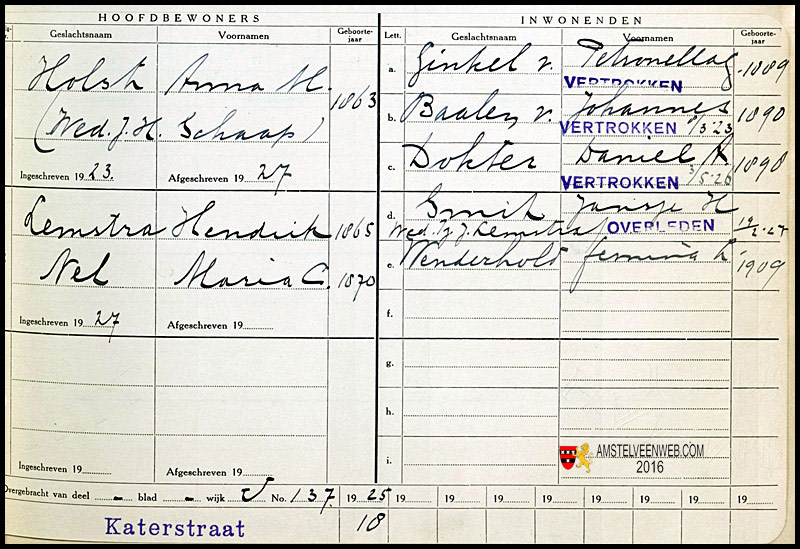 HOOFDBEWONERS
Geslachtsnaam Voornamen Geboorte-jaar
Holst Anna M. 1863
(Wed. J. H. Schaap)
Ingeschreven 19 23. Afgeschreven 19 27
Lemstra Hendrik 1865
Nel Maria C. 1870
Ingeschreven 19 27 Afgeschreven 19
Ingeschreven 19 Afgeschreven 19
INWONENDEN
Lett. Geslachtsnaam Voornamen Geboorte-jaar
a. Ginkel v. Petronella G 1889
VERTROKKEN
b. Baalen v. Johannes 1890
VERTROKKEN
c. Dokter Daniel R 1898
VERTROKKEN 3/5-26
d. Smit Jansje H
Wed. J. Lemstra OVERLEDEN
e. Wenderhold Jemina 1909
f.
g.
h.
i.
AMSTELVEENWEB.COM
2016
Overgebracht van deel - blad - wijk No. 137. 19 25 19 19 19 19 19 19 19 19
Katerstraat 18